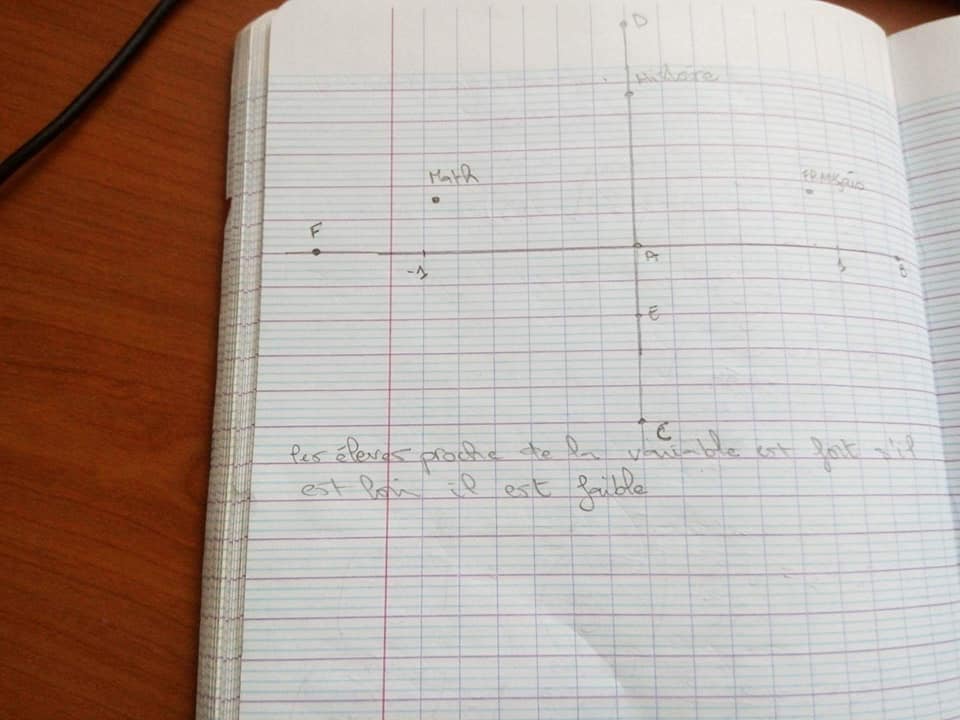 D
Histoire
Math
Français
F
-1
A
1
B
E
C
les éleves proche de la variable est fort s'il
est loin il est faible